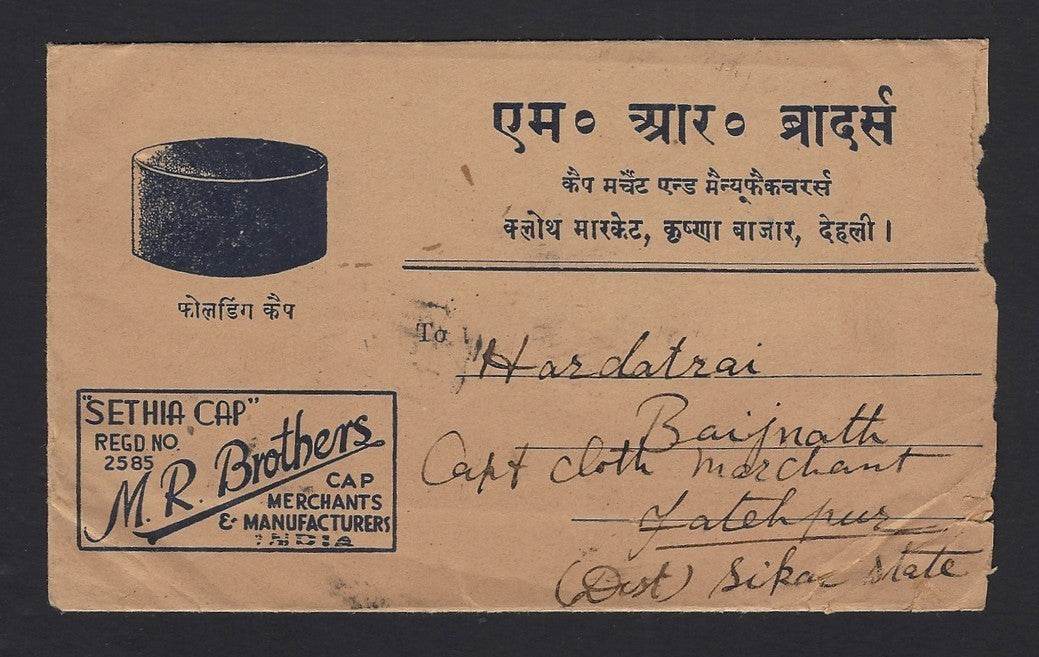 एम० आर० ब्रादर्स
कैप मर्चेंट एन्ड मैन्यूफैकचरर्स
क्लोथ मारकेट, कृष्णा बाजार, देहली।
फोलडिंग कैप
To
Hardatrai
Baijnath
Capt cloth Marchant
Fatehpur
(Dist) Sikar State
"SETHIA CAP"
REGD NO.
2585
M. R. Brothers
CAP
MERCHANTS
& MANUFACTURERS
INDIA